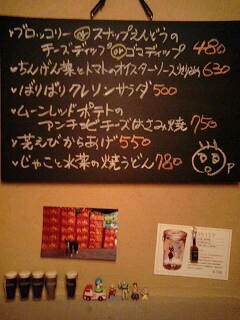 ブロッコリー or スナップえんどうの
チーズディップ or ゴマディップ 480
ちんげん菜とトマトのオイスターソース炒め 630
ぱりぱりクレソンサラダ 500
ムーンレッドポテトの
アンチョビチーズはさみ焼 750
芝えびからあげ 550
じゃこと水菜の焼うどん 780